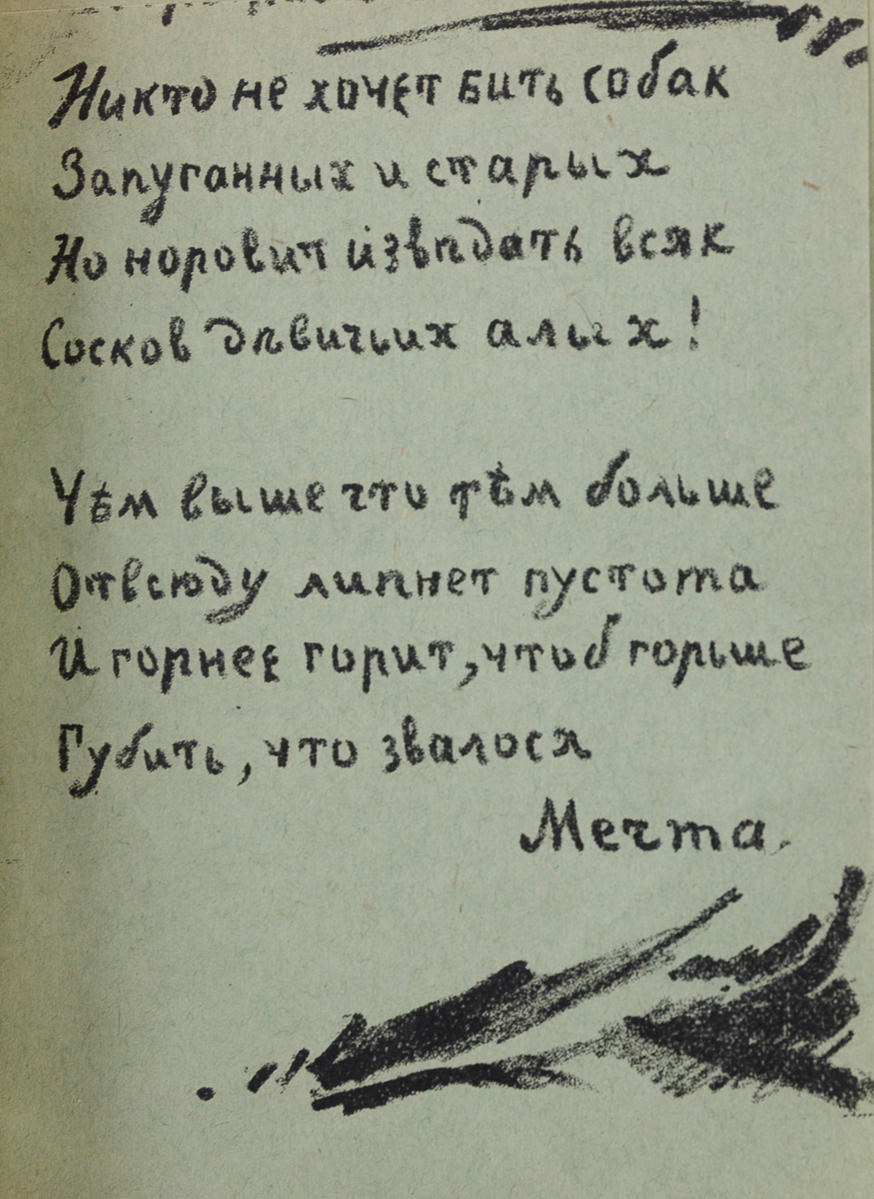 Никто не хочет бить собак
Запуганных и старых
Но норовит извѣдать всяк
Сосков дѣвичьих алых!
Чѣм выше что тѣм больше
Отвсюду липнет пустота
И горнее горит, чтоб горьше
Губить, что звалося
Мечта.